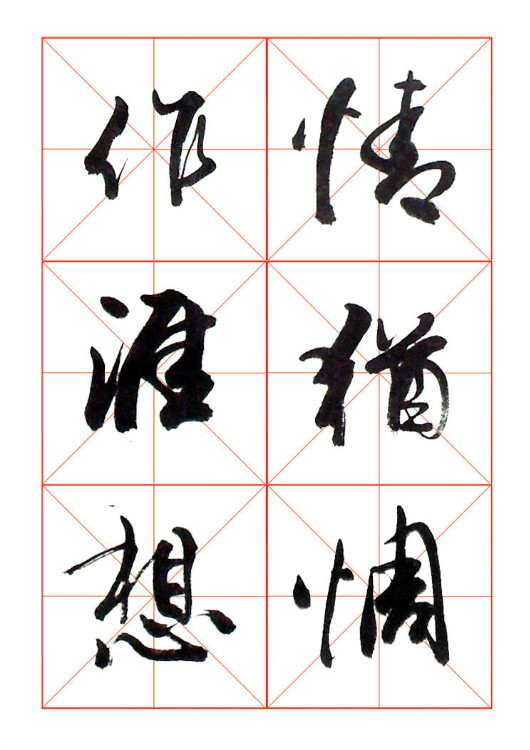 情猶惆
作涯想